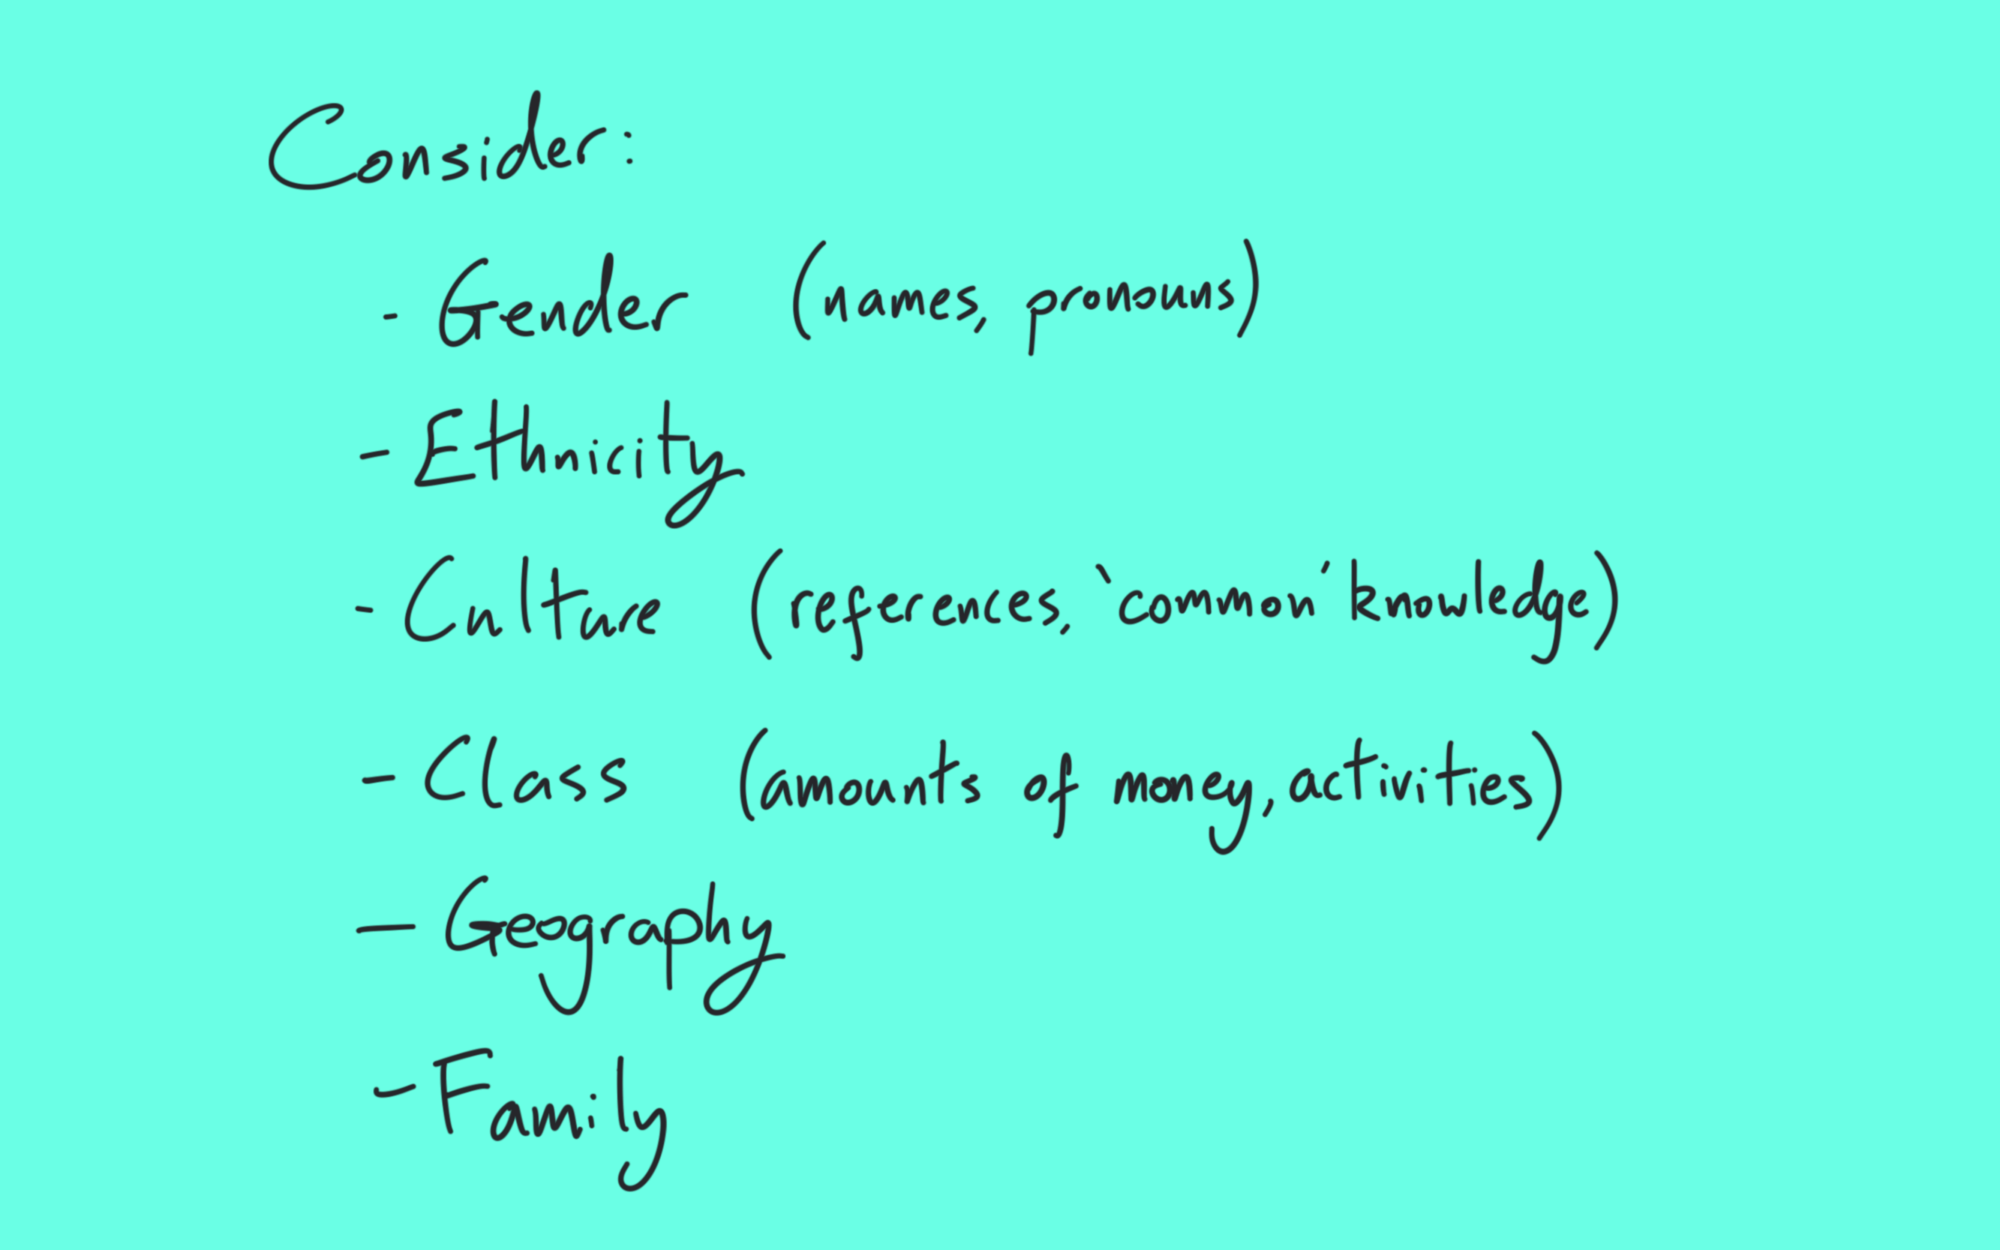 Consider:
- Gender (names, pronouns)
- Ethnicity
- Culture (references, 'common' knowledge)
- Class (amounts of money, activities)
- Geography
- Family